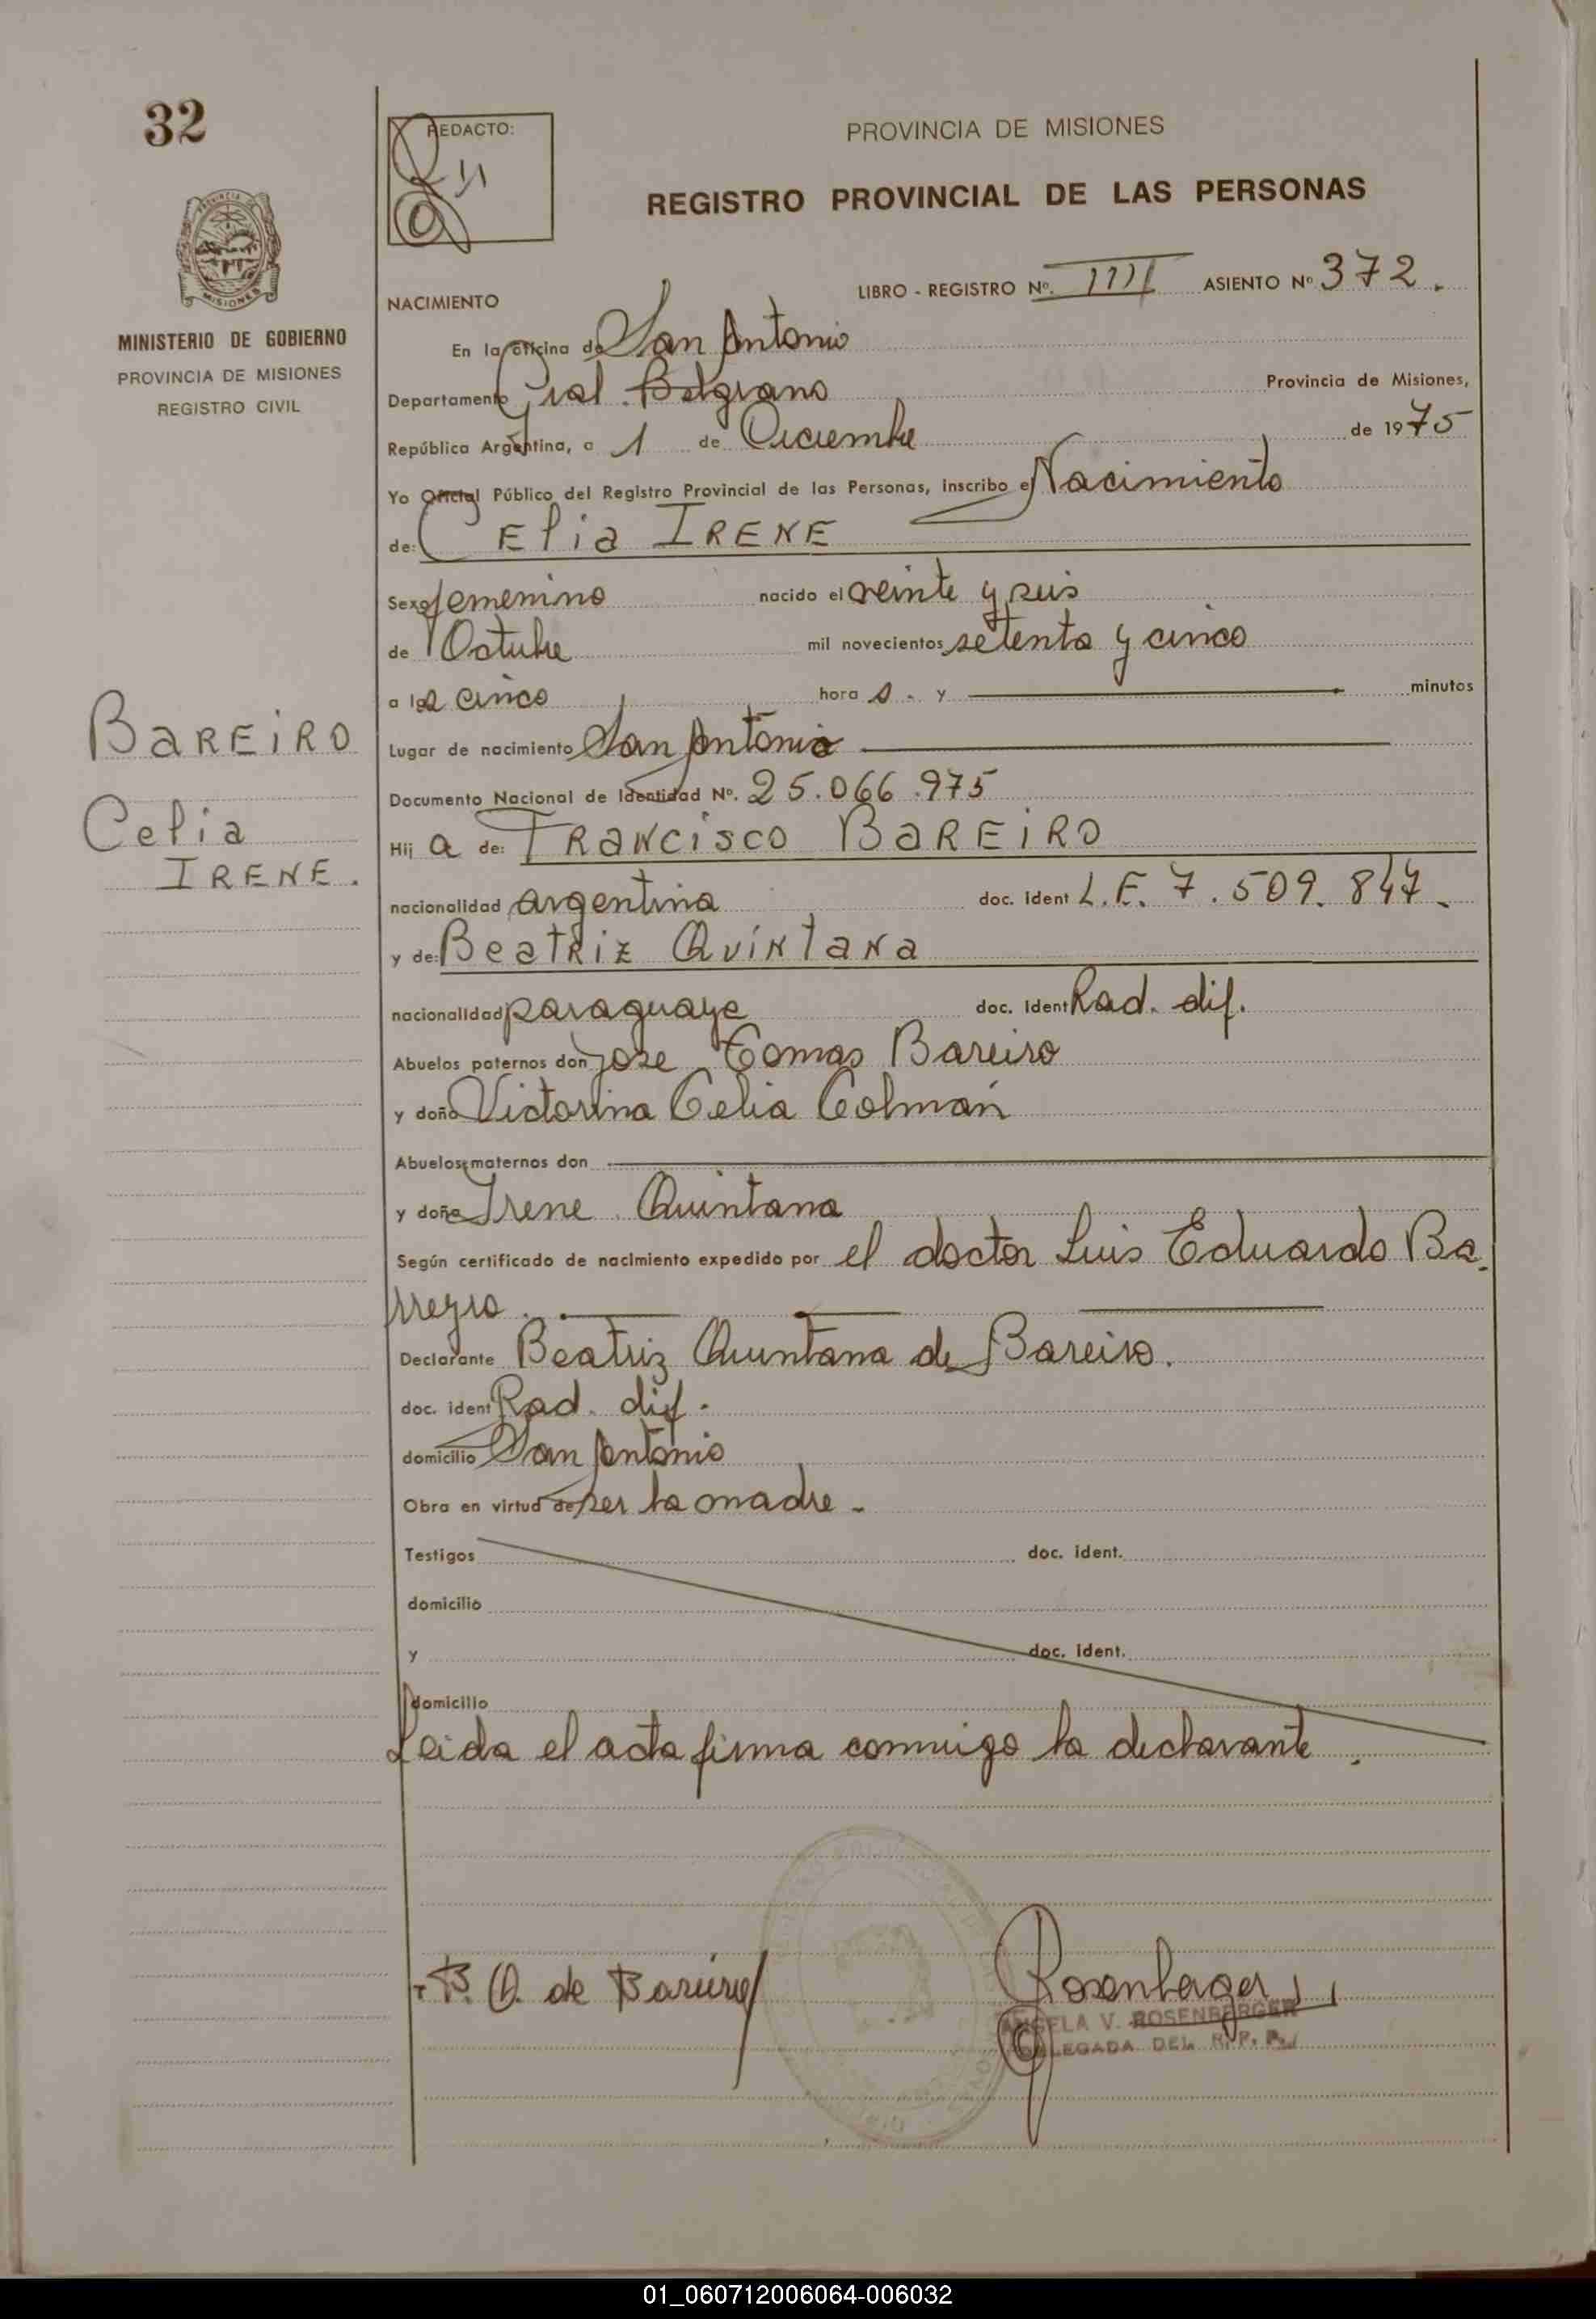 32
REDACTO:
PROVINCIA DE MISIONES
REGISTRO PROVINCIAL DE LAS PERSONAS
MINISTERIO DE GOBIERNO
PROVINCIA DE MISIONES
REGISTRO CIVIL
LIBRO - REGISTRO Nº. IIII ASIENTO Nº 372.
NACIMIENTO
En la oficina de San Antonio
Departamento Gral. Belgrano Provincia de Misiones,
República Argentina, a 1 de Diciembre de 1975
Yo Oficial Público del Registro Provincial de las Personas, inscribo el Nacimiento
de: CELIA IRENE
Sexo femenino nacido el veinte y seis
de Octubre mil novecientos setenta y cinco
a las cinco hora s. y minutos
BAREIRO
Celia
IRENE.
Lugar de nacimiento San Antonio
Documento Nacional de Identidad Nº. 25.066.975
Hij a de: FRANCISCO BAREIRO
nacionalidad argentina doc. ident L.E. 7.509.847.
y de: BEATRIZ QUINTANA
nacionalidad paraguaya doc. ident Rad. dif.
Abuelos paternos don Jose Tomas Bareiro
y doña Victorina Celia Colmán
Abuelos maternos don
y doña Irene Quintana
Según certificado de nacimiento expedido por el doctor Luis Eduardo Ba-
rreyro.
Declarante Beatriz Quintana de Bareiro.
doc. ident Rad. dif.
domicilio San Antonio
Obra en virtud de ser la madre.
Testigos doc. ident.
domicilio
y doc. ident.
domicilio
Leida el acta firma conmigo la declarante.
B. Q. de Bareiro
Rosenberger
ANGELA V. ROSENBERGER
DELEGADA DEL R. P. P.
01_060712006064-006032